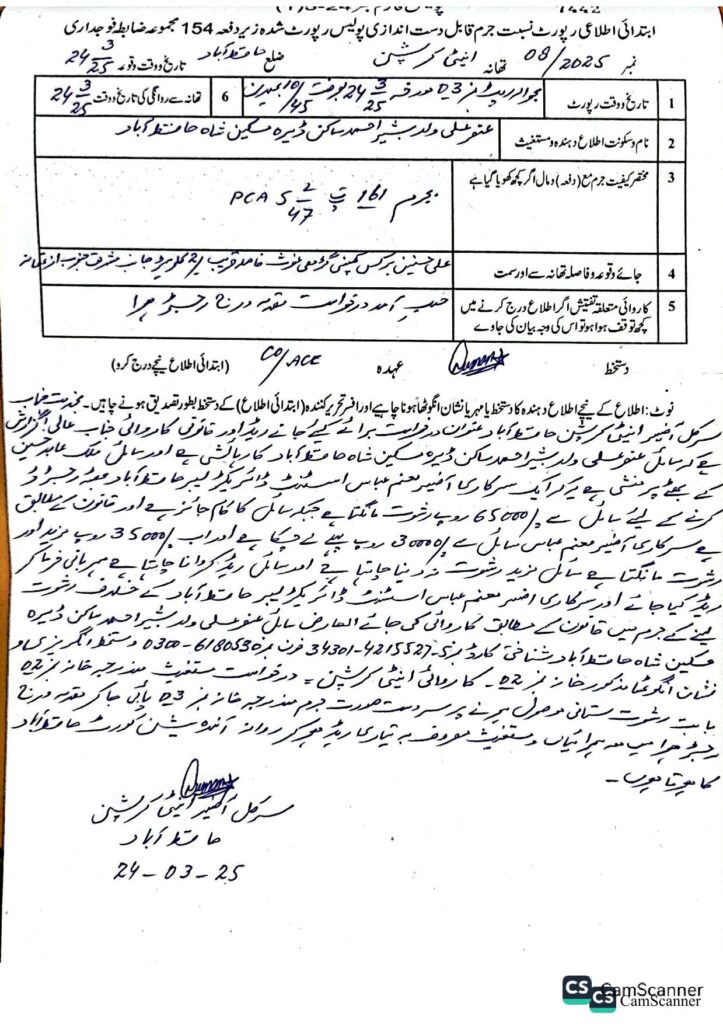 ابتدائی اطلاعی رپورٹ نسبت جرم قابل دست اندازی پولیس رپورٹ شدہ زیر دفعہ 154 مجموعہ ضابطہ فوجداری
نمبر 08/2025 تھانہ اینٹی کرپشن ضلع حافظ آباد تاریخ و وقت وقوعہ 24 3/25
1 تاریخ و وقت رپورٹ بحوالہ رپٹ نمبر 03 مورخہ 24 3/25 بوقت 10/45 بجے دن 6 تھانہ سے روانگی کی تاریخ و وقت 24 3/25
2 نام و سکونت اطلاع دہندہ و مستغیث ولد بشیر احمد ساکن ڈیرہ مسکین شاہ حافظ آباد
3 مختصر کیفیت جرم مع (دفعہ) و مال اگر کچھ کھویا گیا ہے بجرم 161 ت پ 5 2/47 PCA
4 جائے وقوعہ و فاصلہ تھانہ سے اور سمت علی حسنین برکس کمپنی
5 کاروائی متعلقہ تفتیش اگر اطلاع درج کرنے میں کچھ توقف ہوا ہو تو اس کی وجہ بیان کی جاوے حسب آمد درخواست مقدمہ درج رجسٹر ہوا
دستخط عہدہ CO/ACE (ابتدائی اطلاع نیچے درج کرو)
نوٹ: اطلاع کے نیچے اطلاع دہندہ کا دستخط یا مہر یا نشان انگوٹھا ہونا چاہیے اور افسر تحریر کنندہ (ابتدائی اطلاع) کے دستخط بطور تصدیق ہونے چاہیں۔ بخدمت جناب
سرکل آفیسر اینٹی کرپشن حافظ آباد عنوان درخواست برائے کیے جانے ریڈ اور قانونی کاروائی جناب عالی! گزارش
ہے کہ سائل ولد بشیر احمد ساکن ڈیرہ مسکین شاہ حافظ آباد کا رہائشی ہے اور سائل ملک عابد حسین
کے بھٹے پر منشی ہے یہ کہ ایک سرکاری آفیسر عباس اسسٹنٹ ڈائریکٹر لیبر حافظ آباد
کرنے کے لیئے سائل سے 65000/ روپے رشوت مانگتا ہے جبکہ سائل کا کام جائز ہے اور قانون کے مطابق
ہے سرکاری آفیسر عباس سائل سے 30000/ روپے پہلے لے چکا ہے اور اب 35000/ روپے مزید اور
رشوت مانگتا ہے سائل مزید رشوت نہ دینا چاہتا ہے اور سائل ریڈ کروانا چاہتا ہے مہربانی فرما کر
ریڈ کیا جائے اور سرکاری آفیسر عباس اسسٹنٹ ڈائریکٹر لیبر حافظ آباد کے خلاف رشوت
لینے کے جرم میں قانون کے مطابق کاروائی کی جائے العارض سائل ولد بشیر احمد ساکن ڈیرہ
مسکین شاہ حافظ آباد شناختی کارڈ نمبر 34301-4215527-5 فون نمبر 0300-6180530 دستخط انگریزی و
نشان انگوٹھا مذکور خانہ نمبر 02۔ کاروائی اینٹی کرپشن۔ درخواست مستغیث مندرجہ خانہ نمبر 02
بابت رشوت ستانی موصول ہونے پر سردست صورت جرم مندرجہ خانہ نمبر 03 پائی جا کر مقدمہ درج
رجسٹر ہوا میں مع ہمرائیاں و مستغیث معروف بہ تیاری ریڈ ہو کر روانہ آمدہ سیشن کورٹ حافظ آباد
کا ہوتا ہوں۔
سرکل آفیسر اینٹی کرپشن
حافظ آباد
24-03-25
CS CamScanner
CS CamScanner